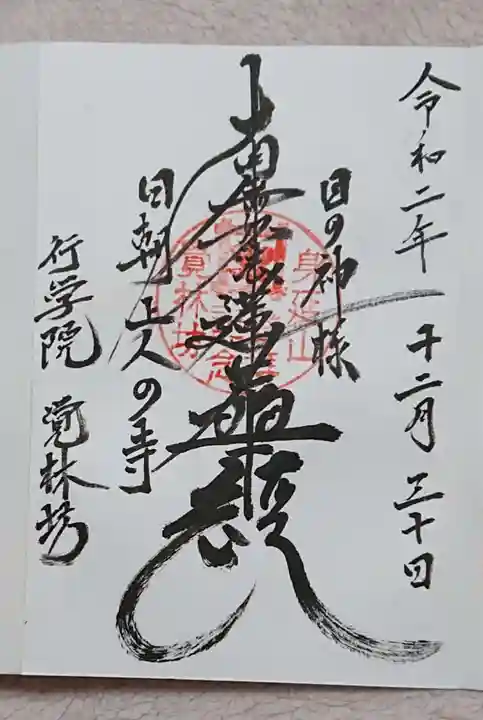 令和二年 十二月 三十日
目の神様
南無妙法蓮華経
日朝上人の寺
行学院 覚林坊
身延山
覚林坊